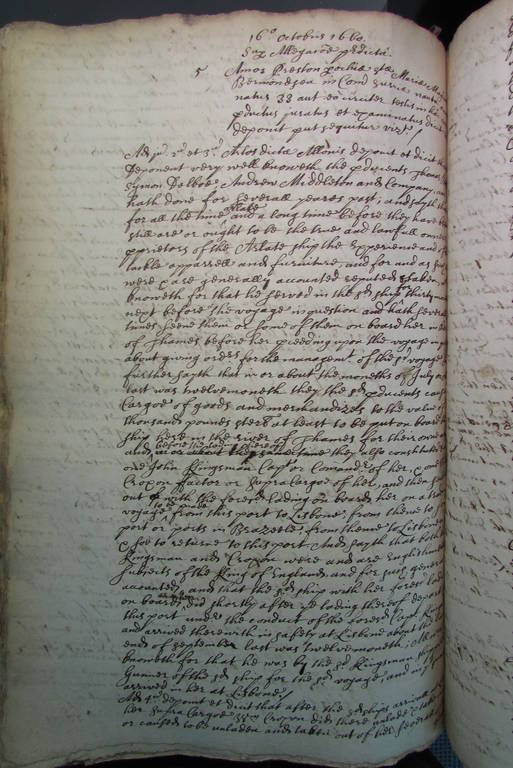 16º Octobris 1660.
Sup Allegacoe predicta.
5 Amos Preston pochiæ Stæ Mariæ
Bermondsey in Com Surriæ nauta
natus 38 aut eo circiter testis in
pductus juratus et examinatus dicit
deponit put sequitur vizt.
Ad jum 2 et 3 Artos dictæ Allonis deponit et dicit
deponent very well knoweth the pducents Thomas
Symon Delboe, Andrew Middleton and Company, and
hath done for severall yeares past; and sayth that
for all the time arlate and a long time before they have been
still are or ought to be the true and lawfull owners
porietors of the Arlate ship the Experience and
tackle apparrell and furniture, and for and as such
were & are generally accounted reputed & taken,
knoweth for that he served in the sd ship thirty
next before the voyage in question and hath severall
times seene them or some of them on board her in the
of Thames before her pceeding upon the voyage in
about giving order for the managemt of the sd voyage
further sayth that in or about the moneths of July or
last was twelvemoneth they the sd pducents
Cargoe of goods and merchandizes to the value of
thousand pounds sterl at least to be put on board
ship here in the river of Thames for their owne
and before the they also constituted
one John Kingsman Capt or Comander of her, & one
Croxon factor or Supra Cargoe of her, and then
out with the foresd lading on board her on a
voyage to be made from this port to Lisbone, from thence to
port or ports in Brazeele, from thence to Lisbone
& soe to returne to this port And sayth that both
Kingsman and Croxon were and are Englishmen
subjects of the King of England, and for such generally
accounted, and that the sd ship with her foresd lading
on board did shortly after ye lading thereof depart
this port under the conduct of the foresd Capt Kingsman
and arrived therewith in safety at Lisbone about the
end of September last was twelvemoneth, All which
knoweth for that he was by the sd Kingsman shipped
Gunner of the sd ship for the sd voyage, and
arrived in her at Lisbone.
Ad 4um deponit et dicit that after the sd ships arrivall
her supra Cargoe Croxon did there unlade
or caused to be unladen and taken out of her severall